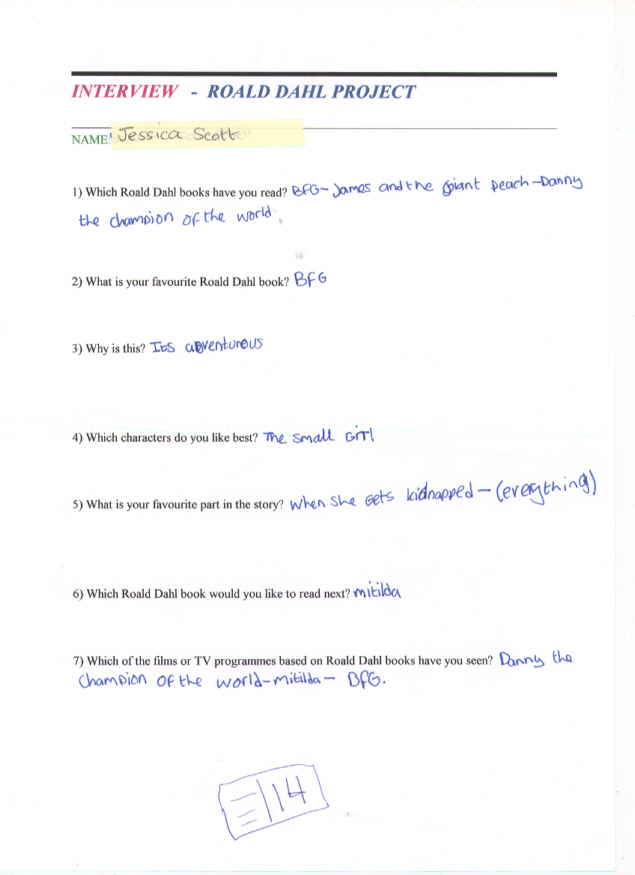 INTERVIEW - ROALD DAHL PROJECT
NAME: Jessica Scott
1) Which Roald Dahl books have you read? BFG- James and the giant peach-Danny
the champion of the world.
2) What is your favourite Roald Dahl book? BFG
3) Why is this? Its adventurous
4) Which characters do you like best? The small Girl
5) What is your favourite part in the story? When She Gets kidnapped - (everything)
6) Which Roald Dahl book would you like to read next? mitilda
7) Which of the films or TV programmes based on Roald Dahl books have you seen? Danny the
Champion of the world-mitilda- BFG.
14